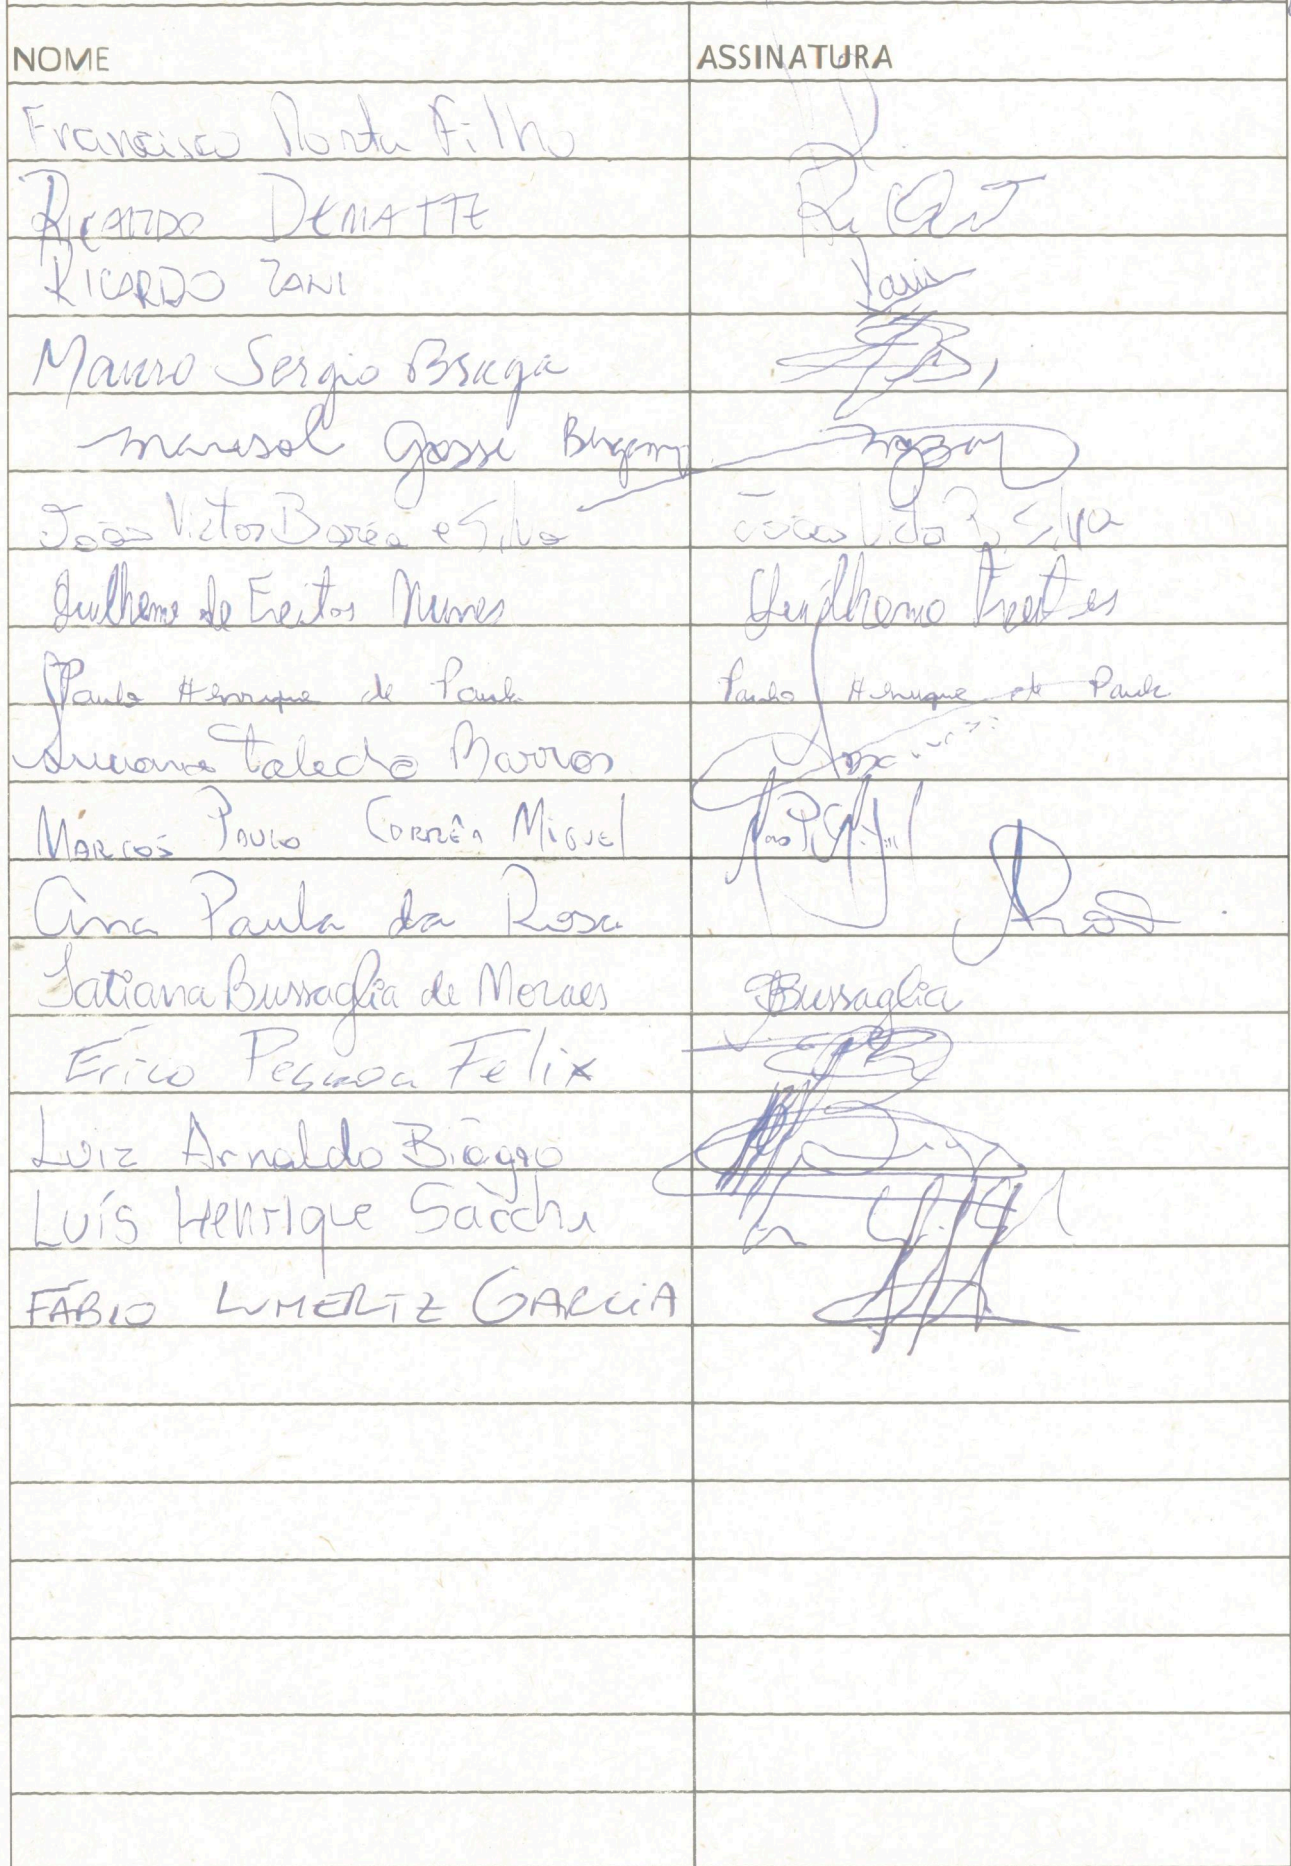 NOME ASSINATURA
Francisco Filho
RICARDO DEMATTE
RICARDO ZANI Zani
Mauro Sergio Braga
marisol
João Victor Boréa e Silva João Victor B. Silva
Guilherme de Freitas Nunes Guilherme Freitas
Paulo Henrique de Paula Paulo Henrique de Paula
Luciana Toledo Barros
MARCOS PAULO CORRÊA MIGUEL
Ana Paula da Rosa
Tatiana Bussaglia de Moraes TBussaglia
Erico Pessoa Felix
Luiz Arnaldo Biagio
Luís Henrique Sacchi
FÁBIO LUMERTZ GARCIA